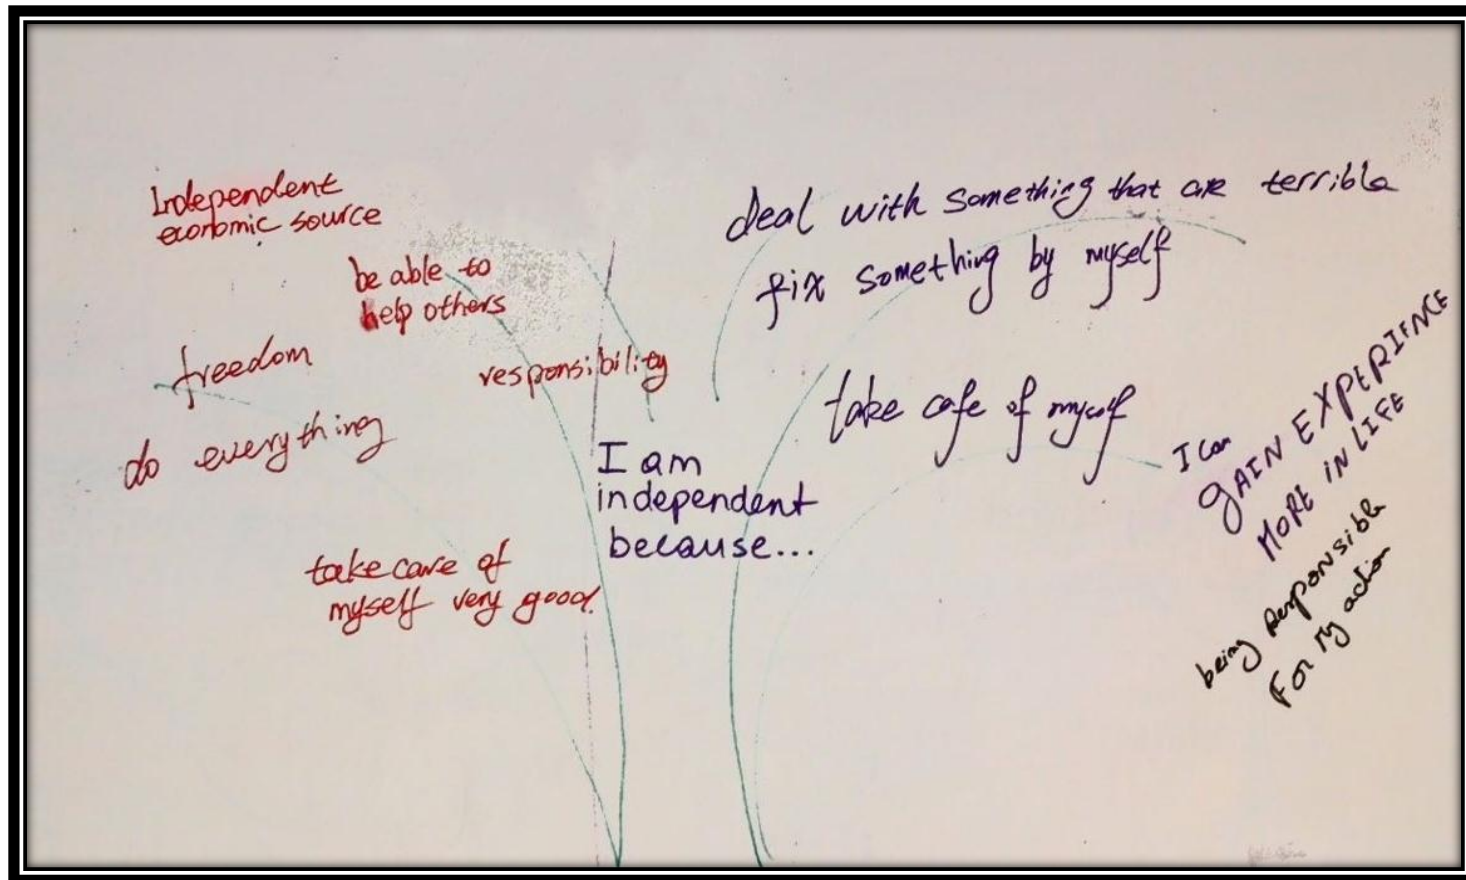 Independent
economic source
be able to
help others
freedom
responsibility
do everything
take care of
myself very good.
I am
independent
because...
deal with something that are terrible
fix something by myself
take cafe of myself
I can
gAIN EXPERIENCE
MORE IN LIFE
being Responsible
FOR My action